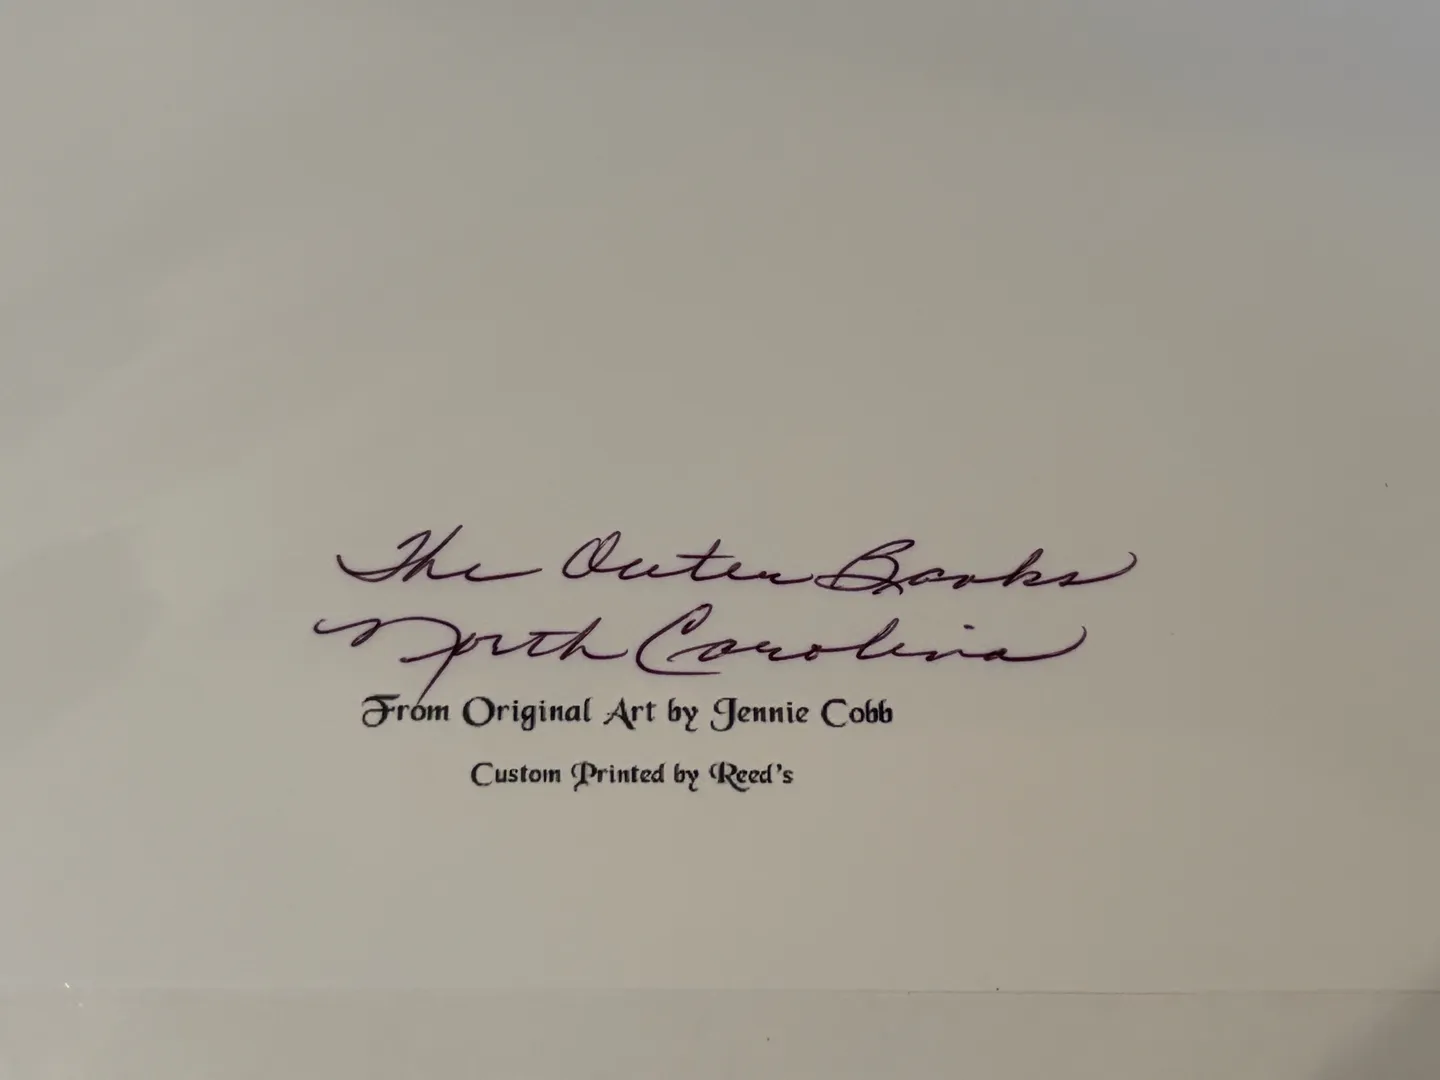 The Outer Banks
North Carolina
From Original Art by Jennie Cobb
Custom Printed by Reed's